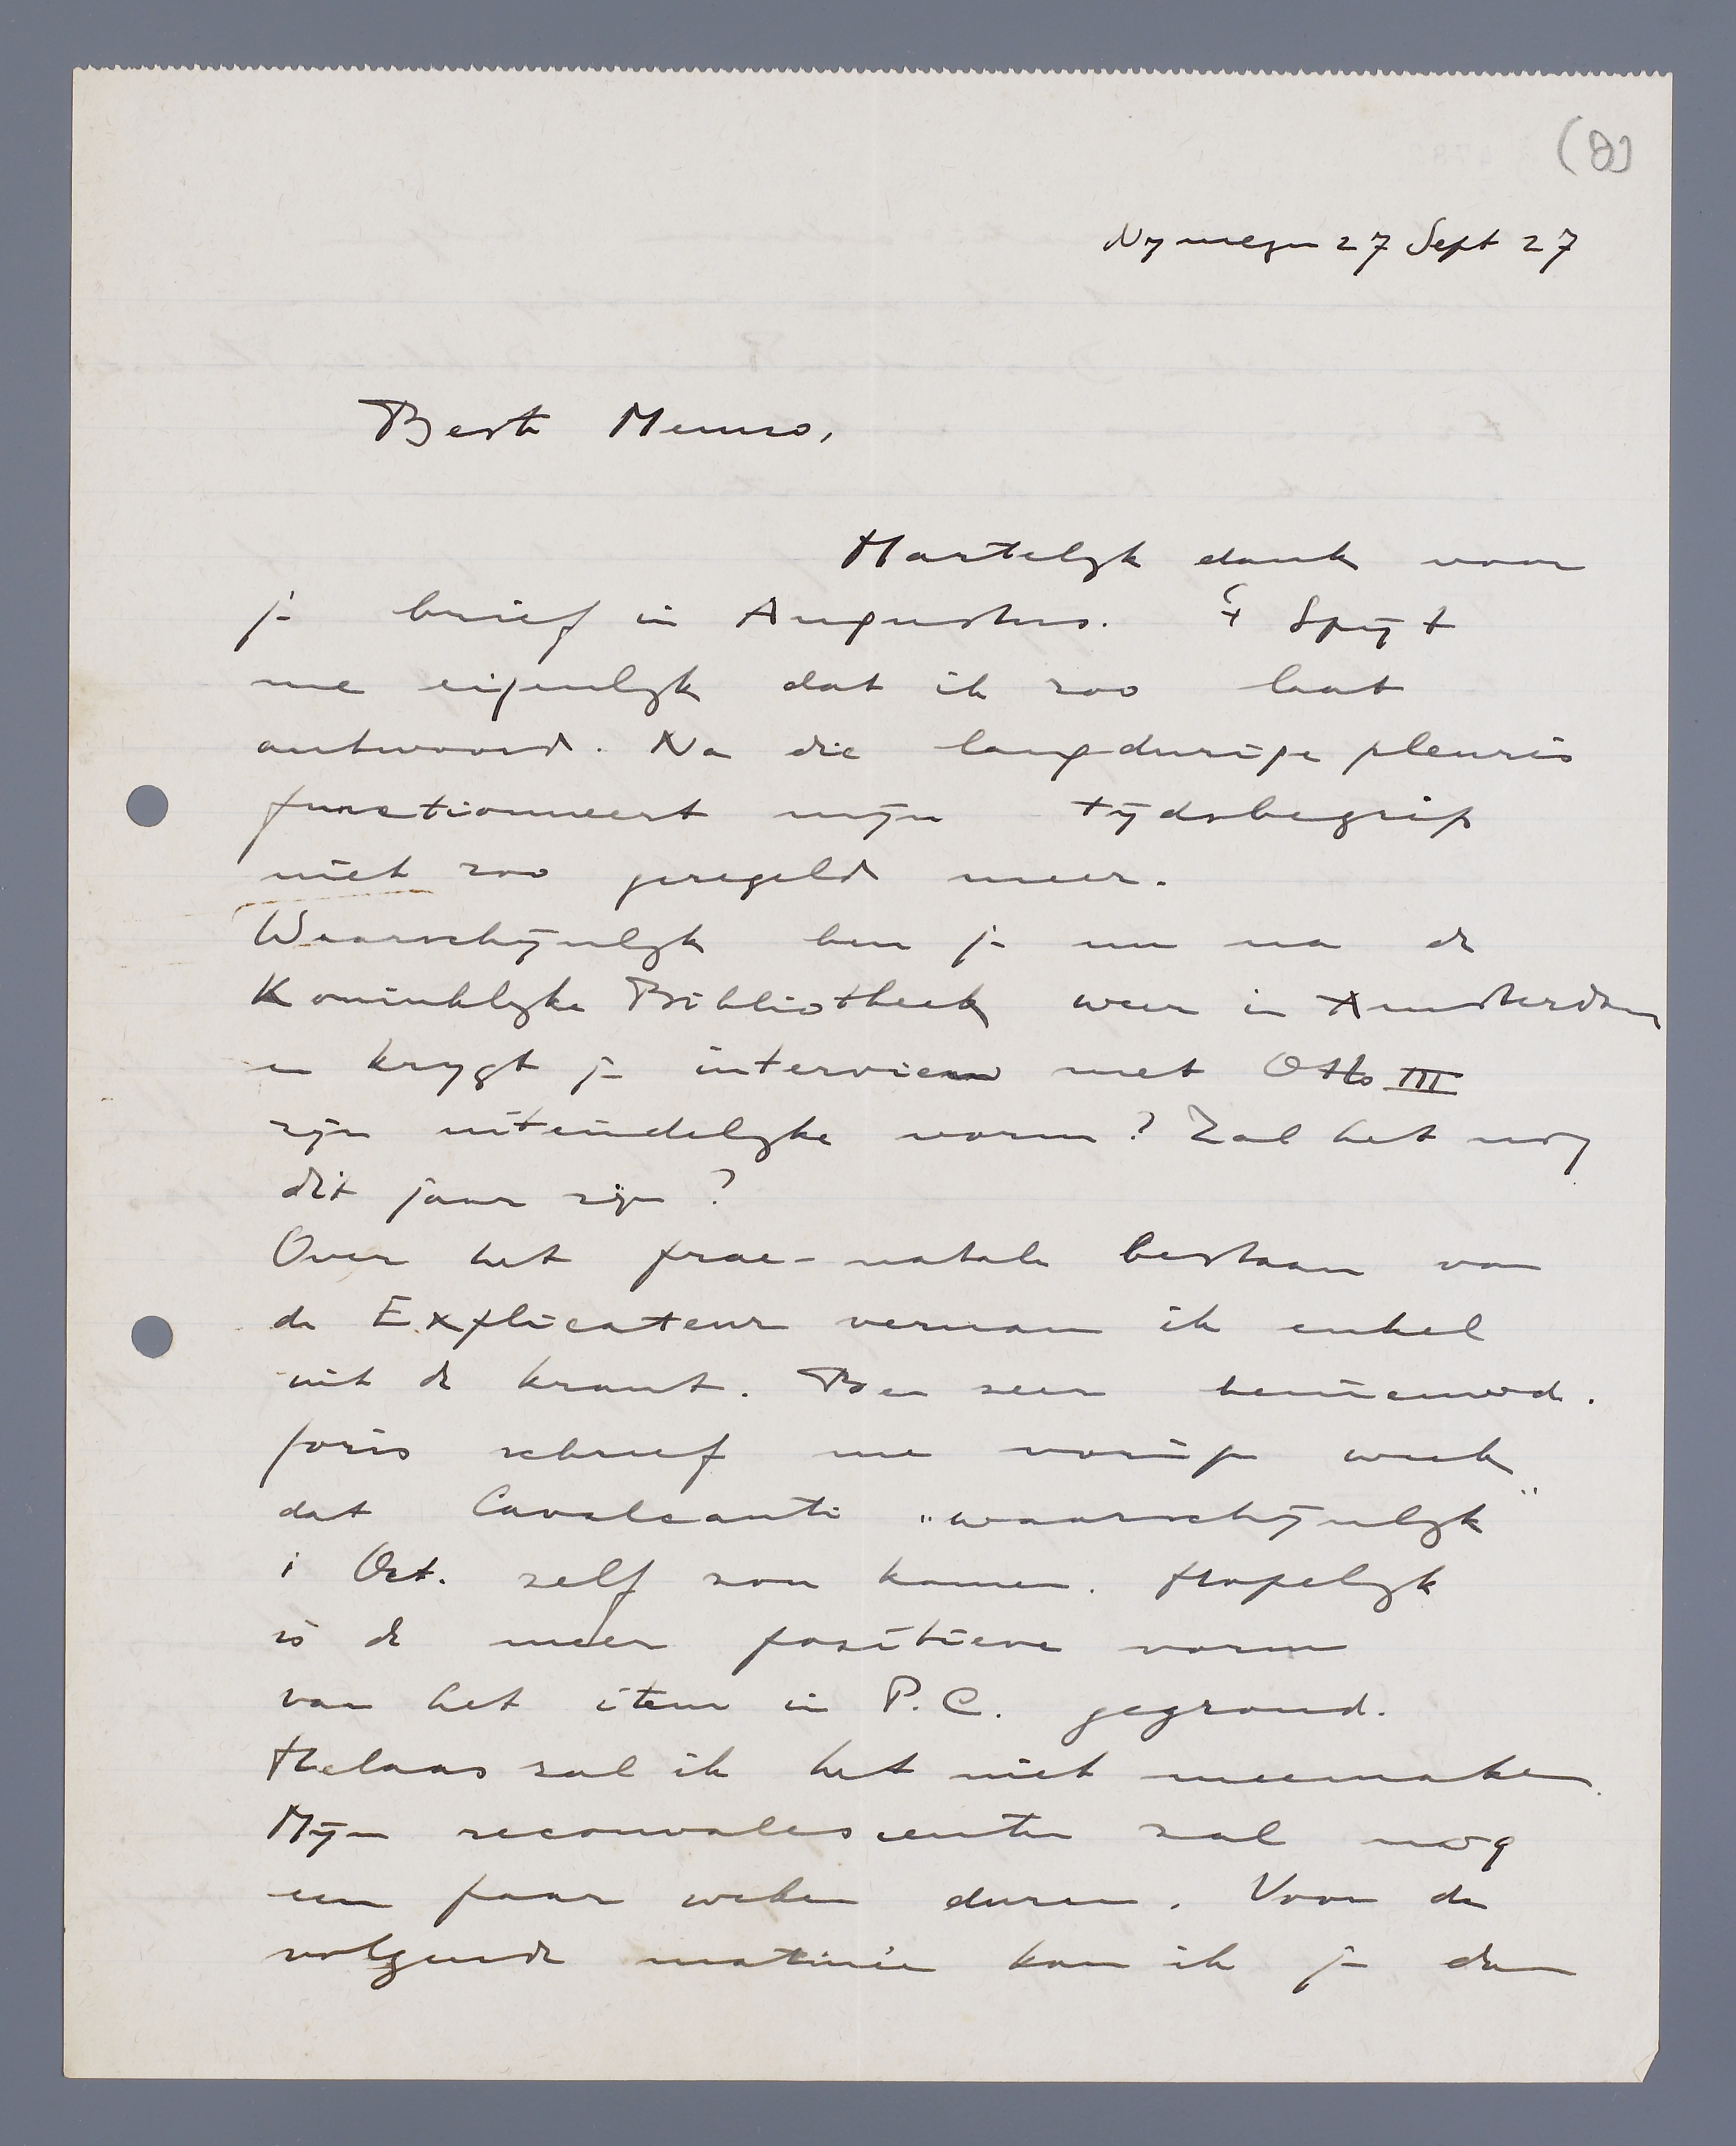 (8)
Nymegen 27 Sept 27
Beste Menno,
Hartelyk dank voor
je brief in Augustus. 't Spijt
me eigenlyk dat ik zoo laat
antwoord. Na die langdurige pleuris
functionneert mijn tijdsbegrip
niet zoo geregeld meer.
Waarschijnlyk ben je nu na de
Koninklyke Bibliotheek weer in Amsterdam
en krygt je interview met Otto III
zijn uiteindelyke vorm? Zal het nog
dit jaar zijn?
Over het prae-natale bestaan van
de Explicateur vernam ik enkel
uit de krant. Ben zeer benieuwd.
Joris schreef me vorige week
dat Cavalcanti „waarschijnlyk"
i Oct. zelf zou komen. Hopelyk
is de meer positieve vorm
van het item in P.C. gegrond.
Helaas zal ik het niet meemaken.
Mijn reconvalescentie zal nog
een paar weken duren. Voor de
volgende matinée kan ik je dan